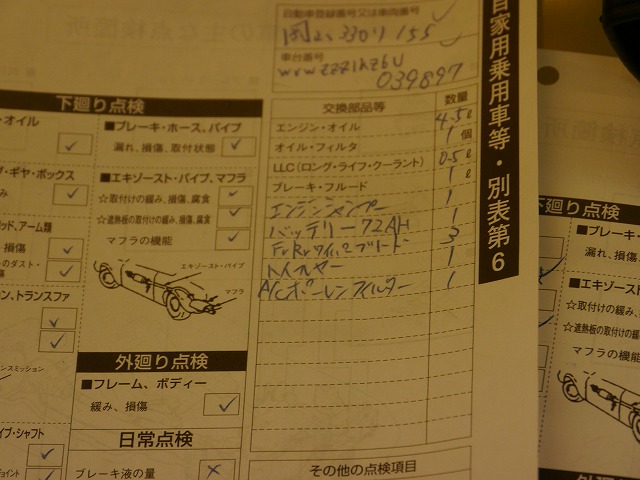 自動車登録番号又は車両番号
車台番号
wvwzzz1kz6u
039897
自家用乗用車等・別表第6
下廻り点検
・オイル
■ブレーキ・ホース、パイプ
漏れ、損傷、取付状態
・ギヤ・ボックス
■エキゾースト・パイプ、マフラ
☆取付けの緩み、損傷、腐食
☆遮熱板の取付けの緩み、損傷、腐食
マフラの機能
ッド、アーム類
損傷
のダスト・
エキゾースト・パイプ
マフラ
ン、トランスファ
外廻り点検
■フレーム、ボディー
緩み、損傷
日常点検
ブレーキ液の量
イプ・シャフト
交換部品等 数量
エンジン・オイル 4.5ℓ
オイル・フィルタ 1個
LLC(ロング・ライフ・クーラント) 0.5ℓ
ブレーキ・フルード 1ℓ
1
バッテリー72AH 1
3
1
A/Cポーレンフィルター 1
その他の点検項目
下廻り点検
■ブレーキ・
漏れ、損
■エキゾースト
☆取付けの緩
☆遮熱板の取付
マフラの機